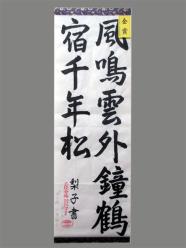 金賞
風鳴雲外鐘鶴
宿千年松
梨子書